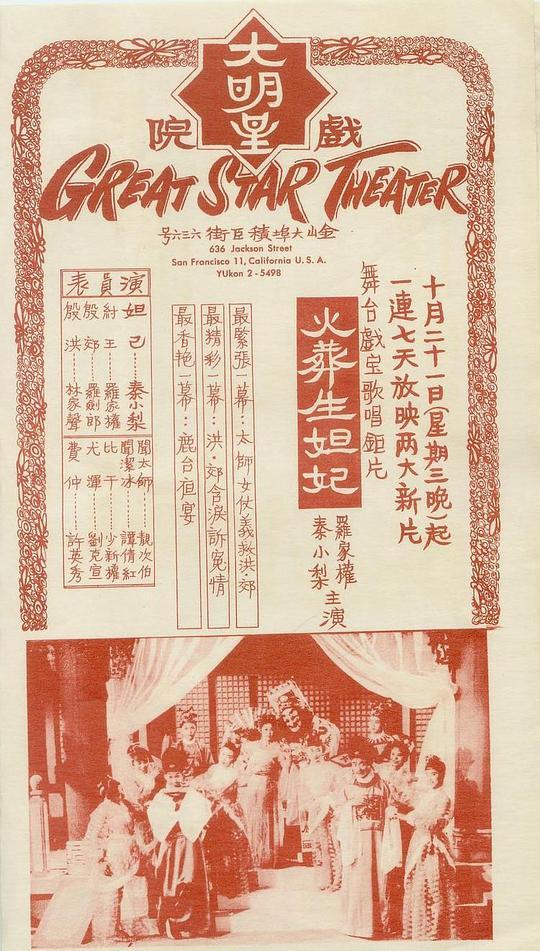 大明星
戲院
GREAT STAR THEATER
金山大埠積臣街六三六号
636 Jackson Street
San Francisco 11, California U. S. A.
YUkon 2 - 5498
十月二十一日(星期三晚)起
一連七天放映两大新片
舞台戲宝歌唱鉅片
火葬生妲妃
羅家權
秦小梨
主演
最緊張一幕：太師女仗義救洪·郊
最精彩一幕：洪·郊含淚訴冤情
最香艳一幕：鹿台夜宴
演員表
妲己……秦小梨
紂王……羅家權
殷郊……羅劍郎
殷洪……林家聲
聞太師……靚次伯
聞潔冰……譚倩紅
比干……少新權
尤渾……劉克宣
費仲……許英秀